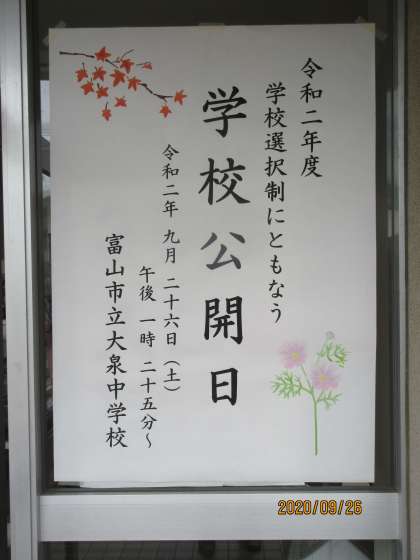 令和二年度
学校選択制にともなう
学校公開日
令和二年 九月 二十六日（土）
午後 一時 二十五分～
富山市立大泉中学校
2020/09/26